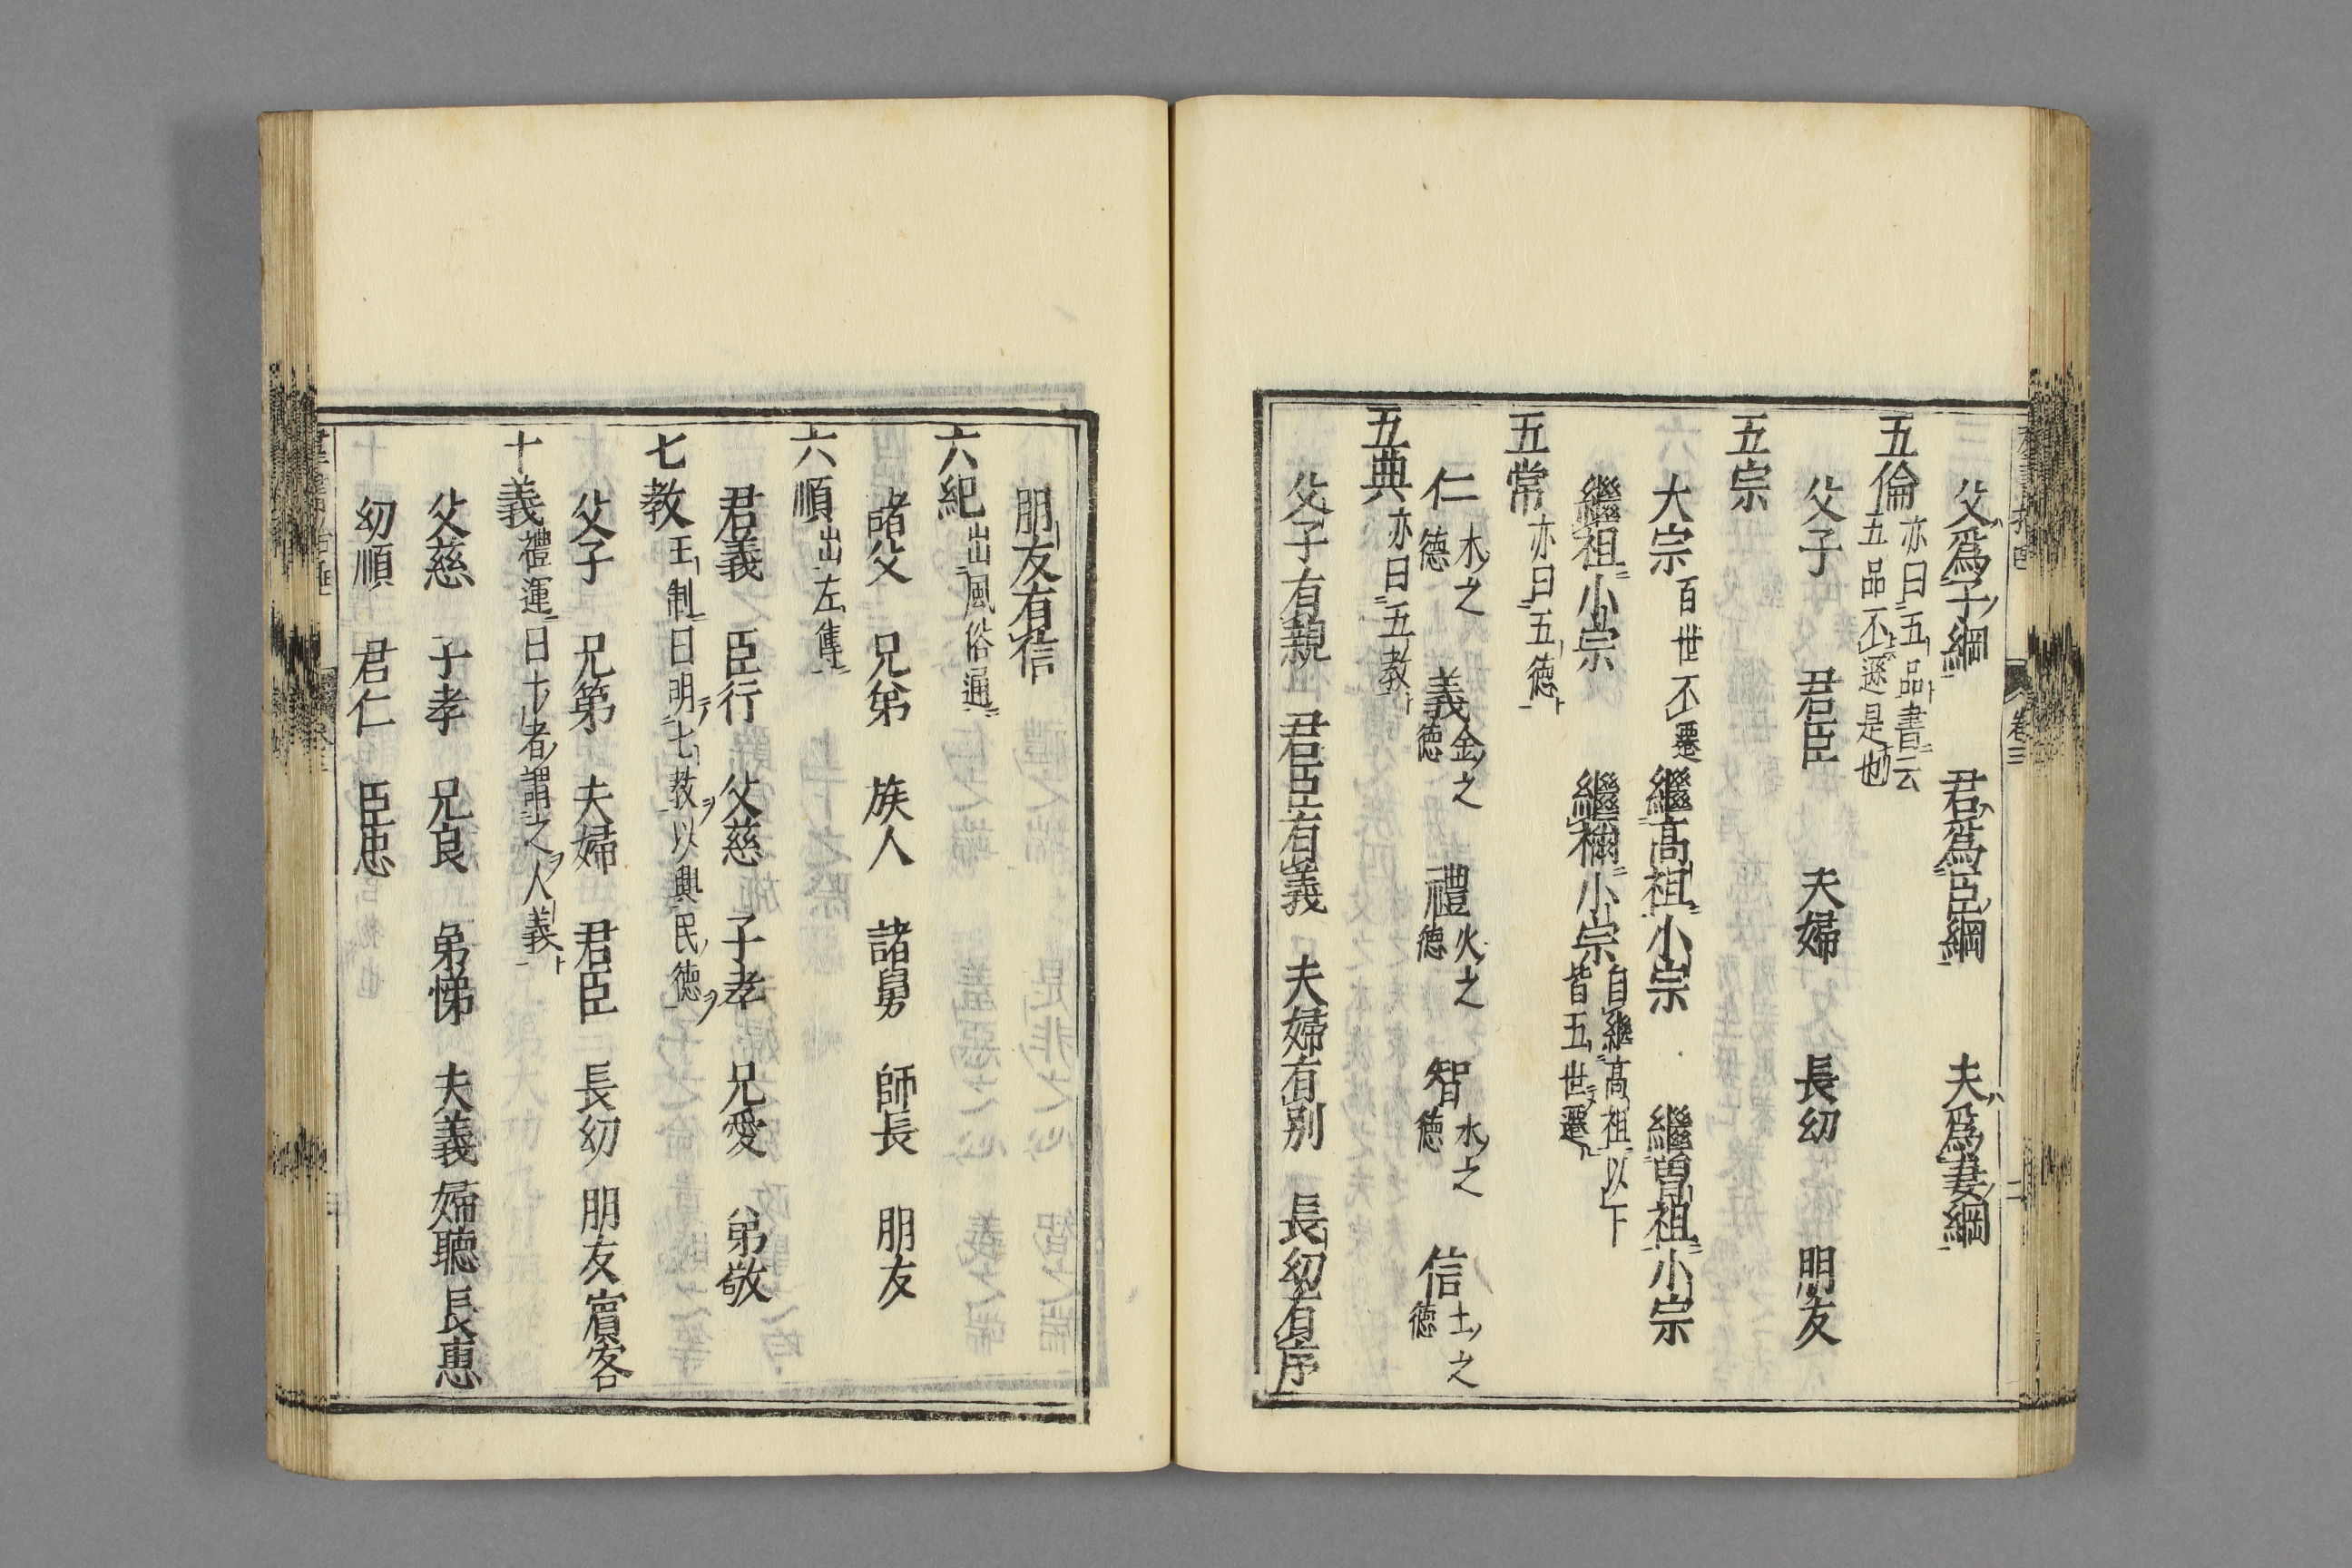 父爲子綱　君爲臣綱　夫爲妻綱
五倫 亦曰五品書云五品不遜是也
父子　君臣　夫婦　長幼　朋友
五宗
大宗 百世不遷　繼高祖小宗　繼曽祖小宗
繼祖小宗　繼禰小宗 自繼高祖以下皆五世遷
五常 亦曰五德
仁 木之德　義 金之德　禮 火之德　智 水之德　信 土之德
五典 亦曰五教
父子有親　君臣有義　夫婦有別　長幼有序
卷三
二
朋友有信
六紀 出風俗通
諸父　兄弟　族人　諸舅　師長　朋友
六順 出左傳
君義　臣行　父慈　子孝　兄愛　弟敬
七教 王制曰明七教以興民德
父子　兄第　夫婦　君臣　長幼　朋友　賓客
十義 禮運曰十者謂之人義
父慈　子孝　兄良　弟悌　夫義　婦聽　長惠
幼順　君仁　臣忠